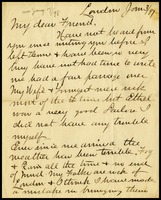 London Jan 3/97
My dear Friend,
Have not heard from
you since writing you before I
left home & have been very
busy have not had time to write
had a fair passage over
My Wife & youngest were sick
most of the time but Ethel
was a very good sailor I
did not have any trouble
myself.
Ever since we arrived the
weather has been terrible, Fog
& Rain all the time & no end
of mud. My Folks are sick of
London & I think I have made
a mistake in bringing them